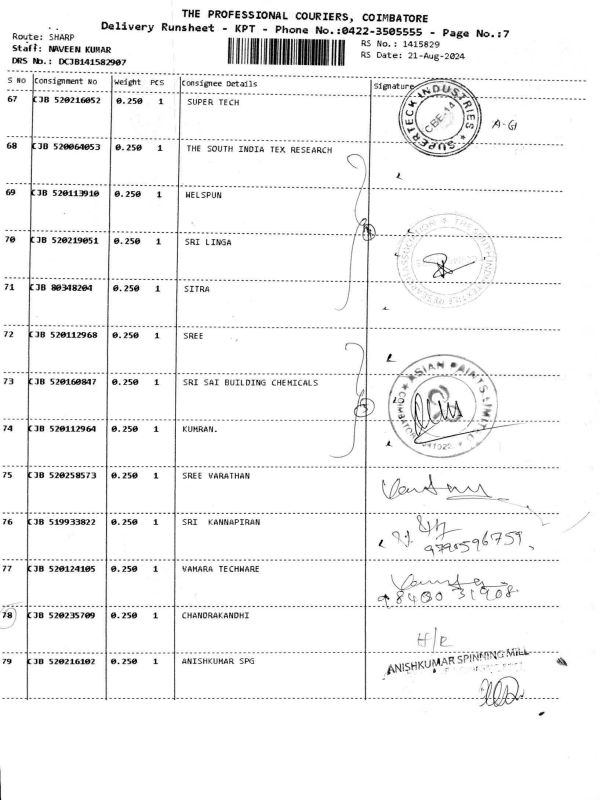 THE PROFESSIONAL COURIERS, COIMBATORE
Delivery Runsheet - KPT - Phone No.:0422-3505555 - Page No.:7
Route: SHARP
RS No.: 1415829
Staff: NAVEEN KUMAR
RS Date: 21-Aug-2024
DRS No.: DCJB141582907
S No Consignment No Weight PCS Consignee Details Signature
67 CJB 520216052 0.250 1 SUPER TECH
SUPERTECK INDUSTRIES
CBE-14
A-G1
68 CJB 520064053 0.250 1 THE SOUTH INDIA TEX RESEARCH
69 CJB 520113910 0.250 1 WELSPUN
70 CJB 520219051 0.250 1 SRI LINGA
71 CJB 80348204 0.250 1 SITRA
72 CJB 520112968 0.250 1 SREE
73 CJB 520160847 0.250 1 SRI SAI BUILDING CHEMICALS
ASIAN PAINTS LIMITED
74 CJB 520112964 0.250 1 KUMRAN.
75 CJB 520258573 0.250 1 SREE VARATHAN
76 CJB 519933822 0.250 1 SRI KANNAPIRAN
9790596759.
77 CJB 520124105 0.250 1 VAMARA TECHWARE
98400 31908
78 CJB 520235709 0.250 1 CHANDRAKANDHI
H/R
79 CJB 520216102 0.250 1 ANISHKUMAR SPG
ANISHKUMAR SPINNING MILL